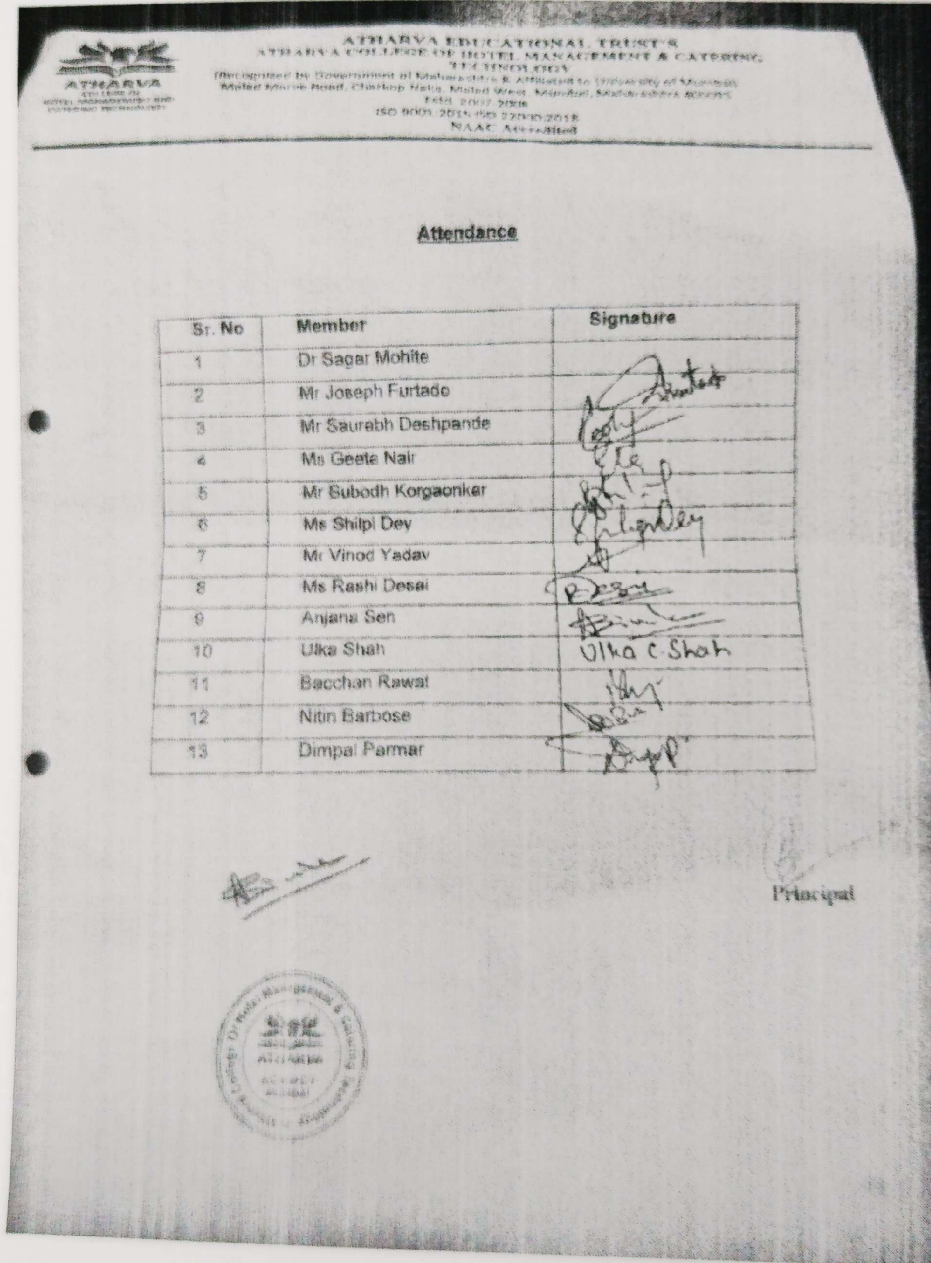 ATHARVA EDUCATIONAL TRUST'S
ATHARVA COLLEGE OF HOTEL MANAGEMENT & CATERING
TECHNOLOGY
(Recognized by Government of Maharashtra & Affiliated to University of Mumbai)
Malad Marve Road, Charkop Naka, Malad West, Mumbai, Maharashtra 400095
Estd. 2007-2008
ISO 9001:2015 ISO 22000:2018
NAAC Accredited
ATHARVA
COLLEGE OF
HOTEL MANAGEMENT AND
CATERING TECHNOLOGY
Attendance
Sr. No Member Signature
1 Dr Sagar Mohite
2 Mr Joseph Furtado
3 Mr Saurabh Deshpande
4 Ms Geeta Nair
5 Mr Subodh Korgaonkar
6 Ms Shilpi Dey
7 Mr Vinod Yadav
8 Ms Rashi Desai
9 Anjana Sen
10 Ulka Shah Ulka C. Shah
11 Bacchan Rawat
12 Nitin Barbose
13 Dimpal Parmar
Principal
ATHARVA